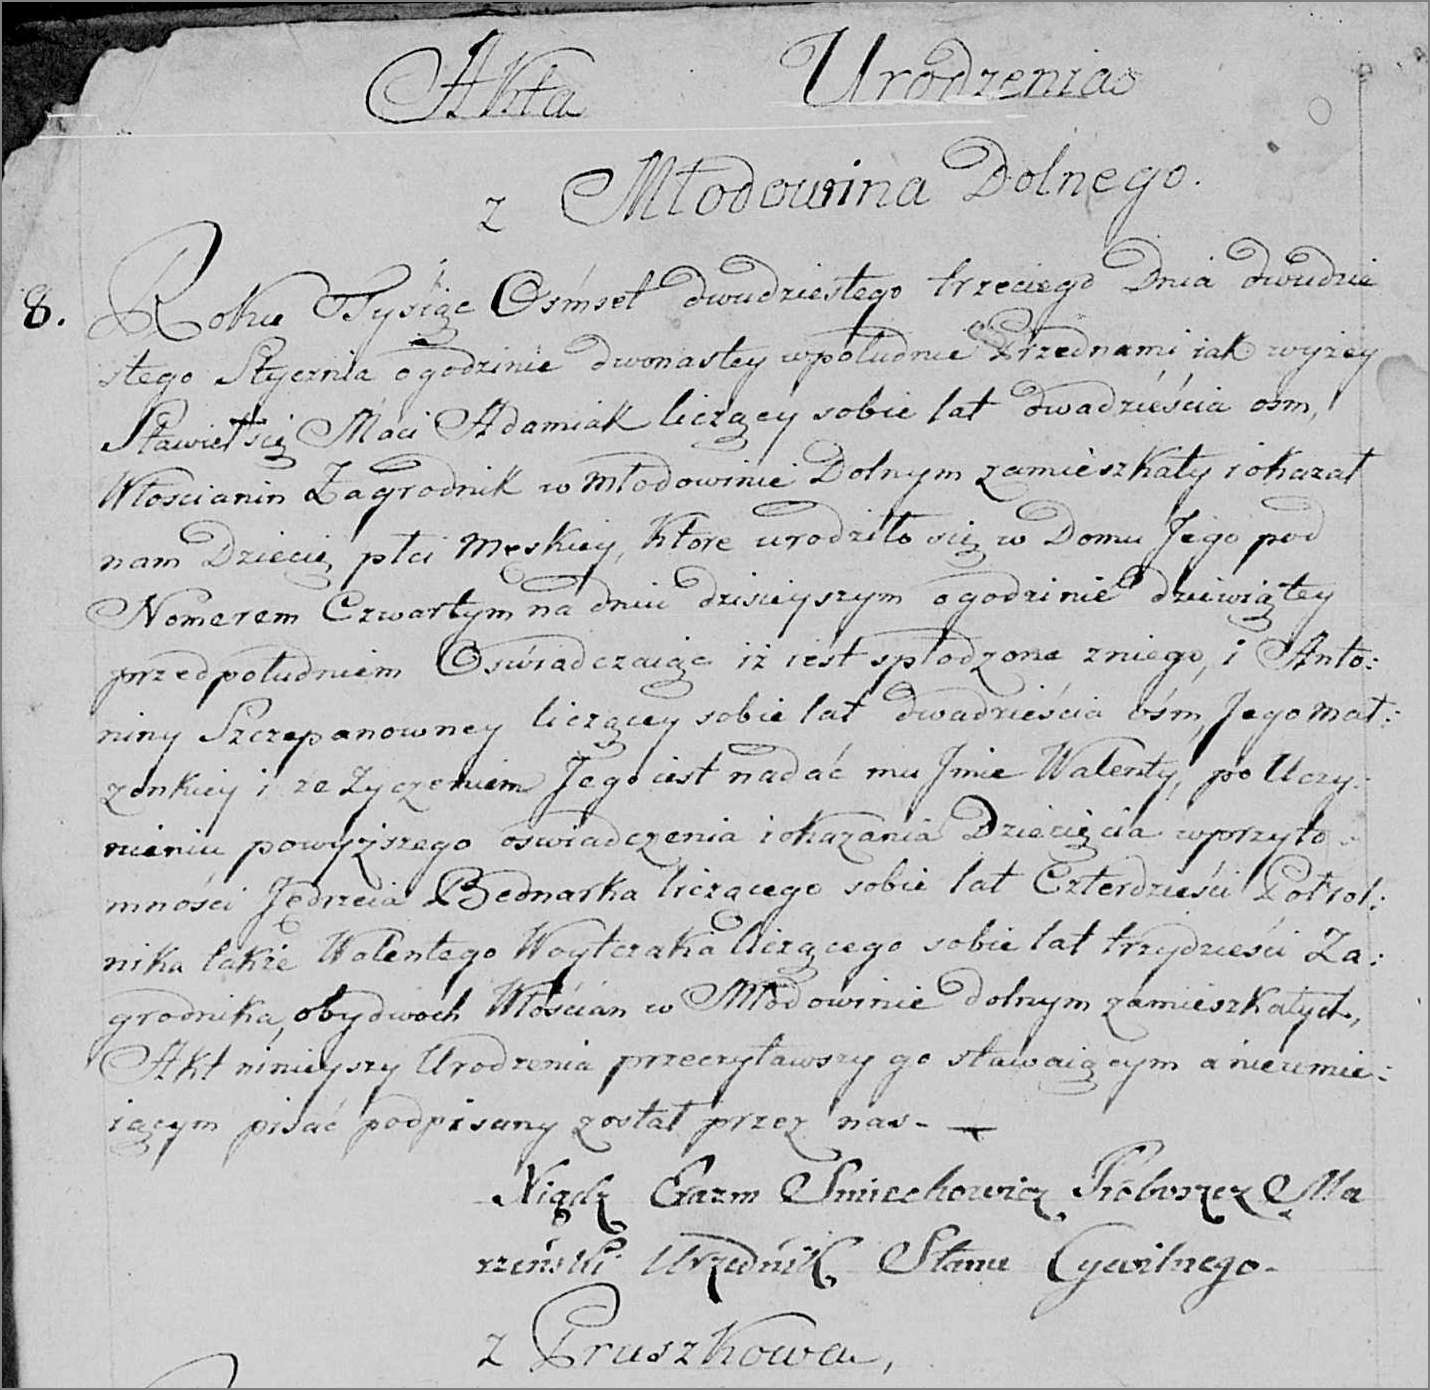 Akta Urodzenia
z Młodowina Dolnego.
8. Roku Tysiąc Ośmset dwudziestego trzeciego Dnia dwudzie
stego Stycznia o godzinie dwonastey w południe Przednami iak wyżey
Stawieł się Maci Adamiak liczący sobie lat dwadzieścia ośm,
Włoscianin Zagrodnik w Młodowinie Dolnym zamieszkały i okazał
nam Dziecię płci Męskiey, które urodziło się w Domu Jego pod
Nomerem Czwartym na dniu dzisieyszym o godzinie dziewiątey
przed południem Oswiadczaiąc iż iest spłodzone z niego, i Anto:
niny Szczepanowney liczącey sobie lat dwadzieścia ośm, Jego mał:
zonkiey i ze Zyczeniem Jego iest nadać mu Jmie Walenty, po Uczy:
nieniu powyższego oswiadczenia i okazania Dziecięcia w przyto
mności Jędrzeia Bednarka liczącego sobie lat Czterdzieści Potrol:
nika także Walentego Woytczaka liczącego sobie lat trzydzieści Za:
grodnika, obydwoch Włościan w Młodowinie dolnym zamieszkałych,
Akt ninieyszy Urodzenia przeczytawszy go stawaiącym a nieumie:
iącym pisać podpisany został przez nas -
Xiądz Erazm Smiechowicz Proboszcz Ma
rzeński Urzędnik Stanu Cywilnego -
z Pruszkowa,